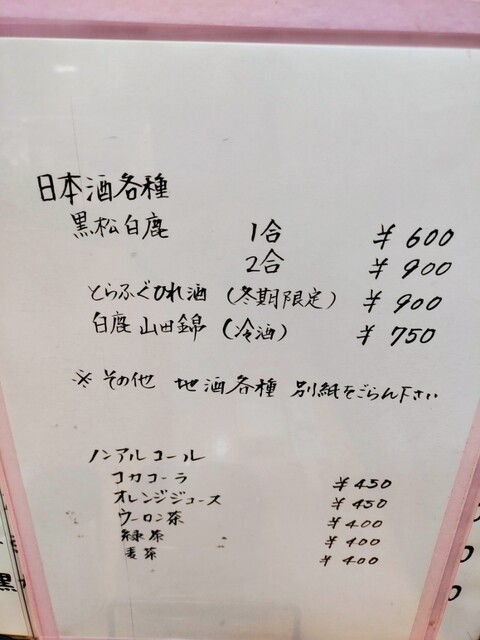 日本酒各種
黒松白鹿 1合 ¥600
2合 ¥900
とらふぐひれ酒 (冬期限定) ¥900
白鹿 山田錦 (冷酒) ¥750
※ その他 地酒各種 別紙をごらん下さい
ノンアルコール
コカコーラ ¥450
オレンジジュース ¥450
ウーロン茶 ¥400
緑茶 ¥400
麦茶 ¥400